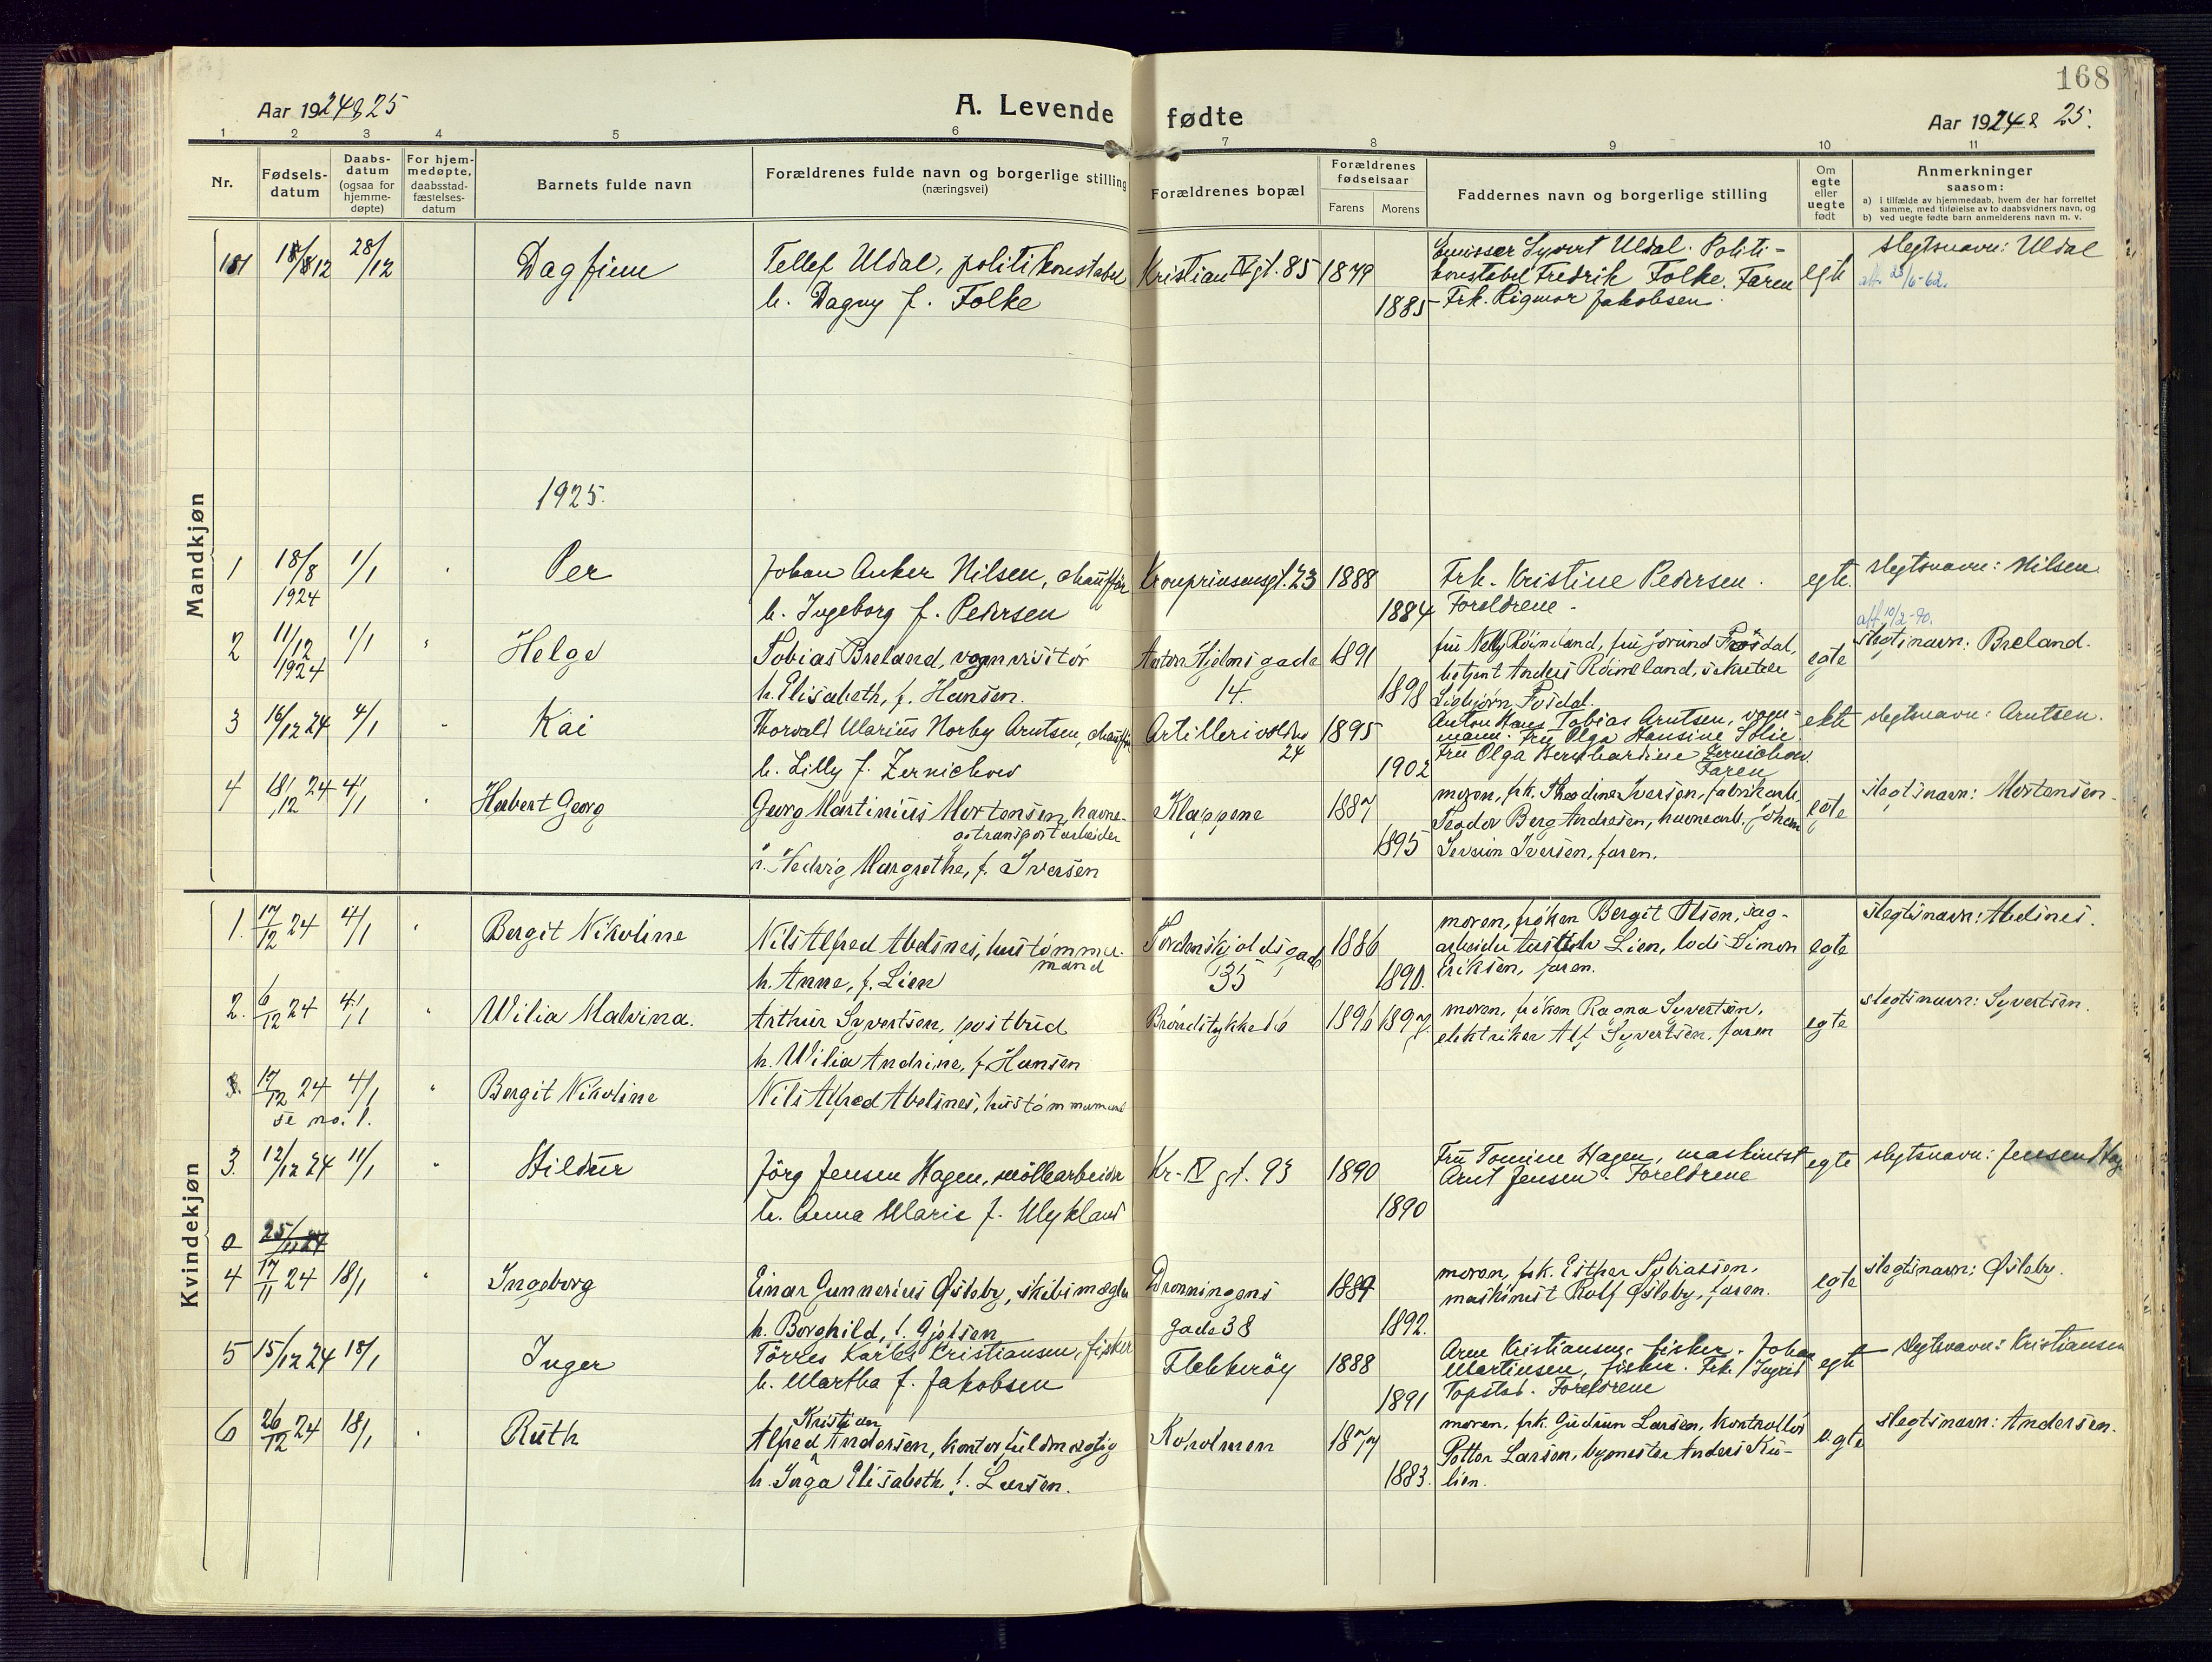 168
Aar 1924 & 25
A. Levende fødte
Aar 1924 & 25.
1 2 3 4 5 6 7 8 9 10 11
Nr.
Fødsels-
datum
Daabs-
datum
(ogsaa for
hjemme-
døpte)
For hjem-
medøpte,
daabsstad-
fæstelses-
datum
Barnets fulde navn
Forældrenes fulde navn og borgerlige stilling
(næringsvei)
Forældrenes bopæl
Forældrenes
fødselsaar
Farens Morens
Faddernes navn og borgerlige stilling
Om
egte
eller
uegte
født
Anmerkninger
saasom:
a) i tilfælde av hjemmedaab, hvem der har forrettet
samme, med tilføielse av to daabsvidners navn, og
b) ved uegte fødte barn anmelderens navn m. v.
Mandkjøn
101 18/8 12 28/12 Dagfinn
Tellef Uldal, politikonstabel
h. Dagny f. Folke
Kristian IV gt. 85 1879
1885
Emissær Syvert Uldal. Politi-
konstabel Fredrik Folke. Faren
Frk. Rigmor Jakobsen.
egte
slegtsnavn: Uldal
att. 25/6-62.
1925.
1 18/8 1924 1/1 Per
Johan Anker Nilsen, chauffør
h. Ingeborg f. Pedersen
Kronprinsensgt. 23 1888
1884
Frk. Kristine Pedersen.
Foreldrene.
egte.
slegtsnavn: Nilsen.
att. 10/2-70.
2 11/12 1924 1/1 " Helge
Tobias Breland, vognvisitør
h. Elisabeth, f. Hansen.
Anton Hjelms gade
14.
1891
1898
fru Nelly Røineland, fru Jorund Fosdal,
betjent Anders Røineland, sekretær
Sigbjørn Fosdal.
egte
slegtsnavn: Breland.
3 16/12 24 4/1 " Kai
Thorvald Marius Norby Arntsen, chauffør
h. Lilly f. Zernichow
Artillerivolden
24
1895
1902
Anton Hans Tobias Arntsen, vogn-
mann. Fru Olga Hansine Solie
Fru Olga Bernhardine Zernichow.
Faren
ekte
slegtsnavn: Arntsen.
4 18/12 24 4/1 " Herbert Georg
Georg Martinius Mortensen, havne-
og transportarbeider
h. Hedvig Margrethe, f. Iversen
Klappene
1887
1895
moren, frk. Theodine Iversen, fabrikarb.
Teodor Berg Andresen, havnearb. Johan
Severin Iversen, faren.
egte
slegtsnavn: Mortensen.
Kvindekjøn
1. 17/12 24 4/1 " Bergit Nikoline
Nils Alfred Abelsnes, hustømmer-
mand
h. Anne, f. Lien
Tordenskjoldsgade
35
1886
1890.
moren, frøken Bergit Olsen, sag-
arbeider Lien, lods Simon
Eriksen, faren.
egte
slegtsnavn: Abelsnes.
2. 6/12 24 4/1 " Wilia Malvina.
Arthur Syvertsen, postbud
h. Wilia Andrine, f. Hansen
Brøndstykket 6
1896 1897
moren, frøken Ragna Syvertsen,
elektriker Alf Syvertsen, faren
egte
slegtsnavn: Syvertsen.
3. 17/12 24 4/1 " Bergit Nikoline
se no. 1.
Nils Alfred Abelsnes, hustømmermand
3. 12/12 24 11/1 " Hildur
Jörg Jensen Hagen, møllearbeider
h. Anna Marie f. Mykland
Kr. IV gt. 93
1890
1890
Fru Tomine Hagen, maskinist
Arnt Jensen. Foreldrene
egte
slegtsnavn: Jensen Hagen
0 25/11 24
4 17/11 24 18/1 " Ingeborg
Einar Gunnerius Øsleby, skibsmægler
h. Borghild, f. Gjelsen
Dronningens
gade 38
1889
1892.
moren, frk. Esther Sybiassen,
maskinist Rolf Øsleby, faren.
egte
slegtsnavn: Øsleby.
5 15/12 24 18/1 Inger
Tørres Karles Kristiansen, fisker
h. Martha f. Jakobsen
Flekkerøy
1888
1891
Arne Kristiansen, fisker. Johan
Martinsen, fisker. Frk. Ingrid
Topstad. Foreldrene
egte
slegtsnavn: Kristiansen
6 26/12 24 18/1 " Ruth
Kristian
Alfred Andersen, kontorfuldmegtig
h. Inga Elisabeth f. Larsen.
Koholmen
1877
1883.
moren, frk. Gudrun Larsen, kontrollør
Petter Larsen, bygmester Anders Ku-
lien.
egte
slegtsnavn: Andersen.